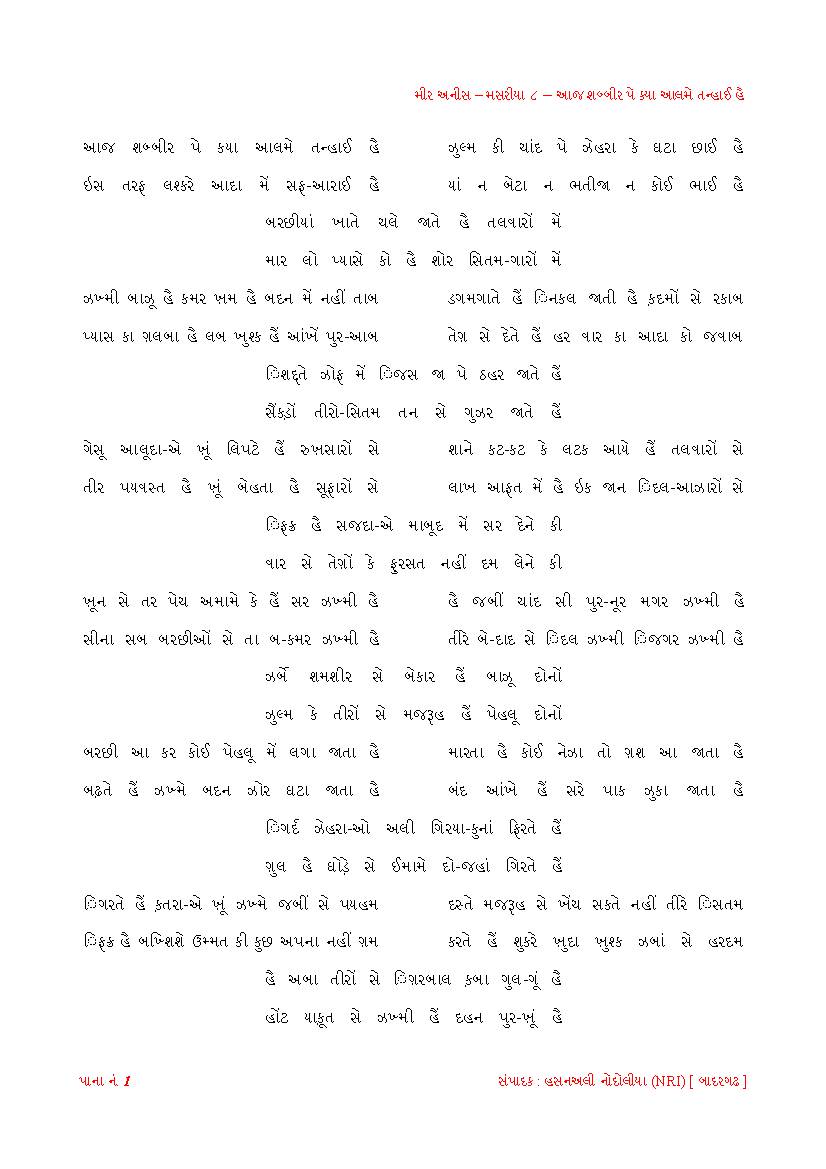 મીર અનીસ – મસરીયા ૮ – આજ શબ્બીર પે ક્યા આલમે તન્હાઈ હૈ
આજ શબ્બીર પે કયા આલમે તન્હાઈ હૈ ઝુલ્મ કી ચાંદ પે ઝેહરા કે ઘટા છાઈ હૈ
ઇસ તરફ લશ્કરે આદા મેં સફ-આરાઈ હૈ યાં ન બેટા ન ભતીજા ન કોઈ ભાઈ હૈ
બરછીયાં ખાતે ચલે જાતે હૈ તલવારોં મેં
માર લો પ્યાસે કો હૈ શોર સિતમ-ગારોં મેં
ઝખ્મી બાઝૂ હૈ કમર ખમ હૈ બદન મેં નહીં તાબ ડગમગાતે હૈં િનકલ જાતી હૈ ક઼દમોં સે રકાબ
પ્યાસ કા ગ઼લબા હૈ લબ ખુશ્ક હૈં આંખેં પુર-આબ તેગ઼ સે દેતે હૈં હર વાર કા આદા કો જવાબ
િશદ્દતે ઝોફ઼ મેં િજસ જા પે ઠહર જાતે હૈં
સૈંક્ડ઼ોં તીરો-સિતમ તન સે ગુઝર જાતે હૈં
ગેસૂ આલૂદા-એ ખૂં લિપટે હૈં રુખસારોં સે શાને કટ-કટ કે લટક આયે હૈં તલવારોં સે
તીર પયવસ્ત હૈ ખૂં બેહતા હૈ સૂફ઼ારોં સે લાખ આફ઼ત મેં હૈ ઇક જાન િદલ-આઝારોં સે
િફ઼ક્ર હૈ સજદા-એ માબૂદ મેં સર દેને કી
વાર સે તેગ઼ોં કે ફુરસત નહીં દમ લેને કી
ખ઼ૂન સે તર પેચ અમામે કે હૈં સર ઝખ્મી હૈ હૈ જબીં ચાંદ સી પુર-નૂર મગર ઝખ્મી હૈ
સીના સબ બરછીઓં સે તા બ-કમર ઝખ્મી હૈ તીરે બે-દાદ સે િદલ ઝખ્મી િજગર ઝખ્મી હૈ
ઝર્બે શમશીર સે બેકાર હૈં બાઝૂ દોનોં
ઝુલ્મ કે તીરોં સે મજરૂહ હૈં પેહલૂ દોનોં
બરછી આ કર કોઈ પેહલૂ મેં લગા જાતા હૈ મારતા હૈ કોઈ નેઝા તો ગ઼શ આ જાતા હૈ
બઢ઼તે હૈં ઝખ્મે બદન ઝોર ઘટા જાતા હૈ બંદ આંખે હૈં સરે પાક ઝુકા જાતા હૈ
િગર્દ ઝેહરા-ઓ અલી ગિરયા-કુનાં ફિરતે હૈં
ગ઼ુલ હૈ ઘોડ઼ે સે ઈમામે દો-જહાં ગિરતે હૈં
િગરતે હૈં ક઼તરા-એ ખૂં ઝખ્મે જબીં સે પયહમ દસ્તે મજરૂહ સે ખેંચ સક્તે નહીં તીરે િસતમ
િફ઼ક્ર હૈ બખ્શિશે ઉમ્મત કી કુછ અપના નહીં ગ઼મ કરતે હૈં શુકરે ખુદા ખુશ્ક ઝબાં સે હરદમ
હૈ અબા તીરોં સે િગ઼રબાલ ક઼બા ગુલ-ગૂં હૈ
હોંટ યાક઼ૂત સે ઝખ્મી હૈં દહન પુર-ખ઼ૂં હૈ
પાના નં. 1 સંપાદક : હસનઅલી નોંદોલીયા (NRI) [ બાદરગઢ ]